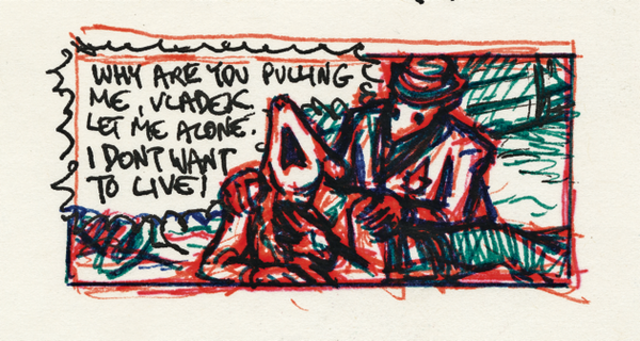 WHY ARE YOU PULLING
ME, VLADEK.
LET ME ALONE.
I DONT WANT
TO LIVE!